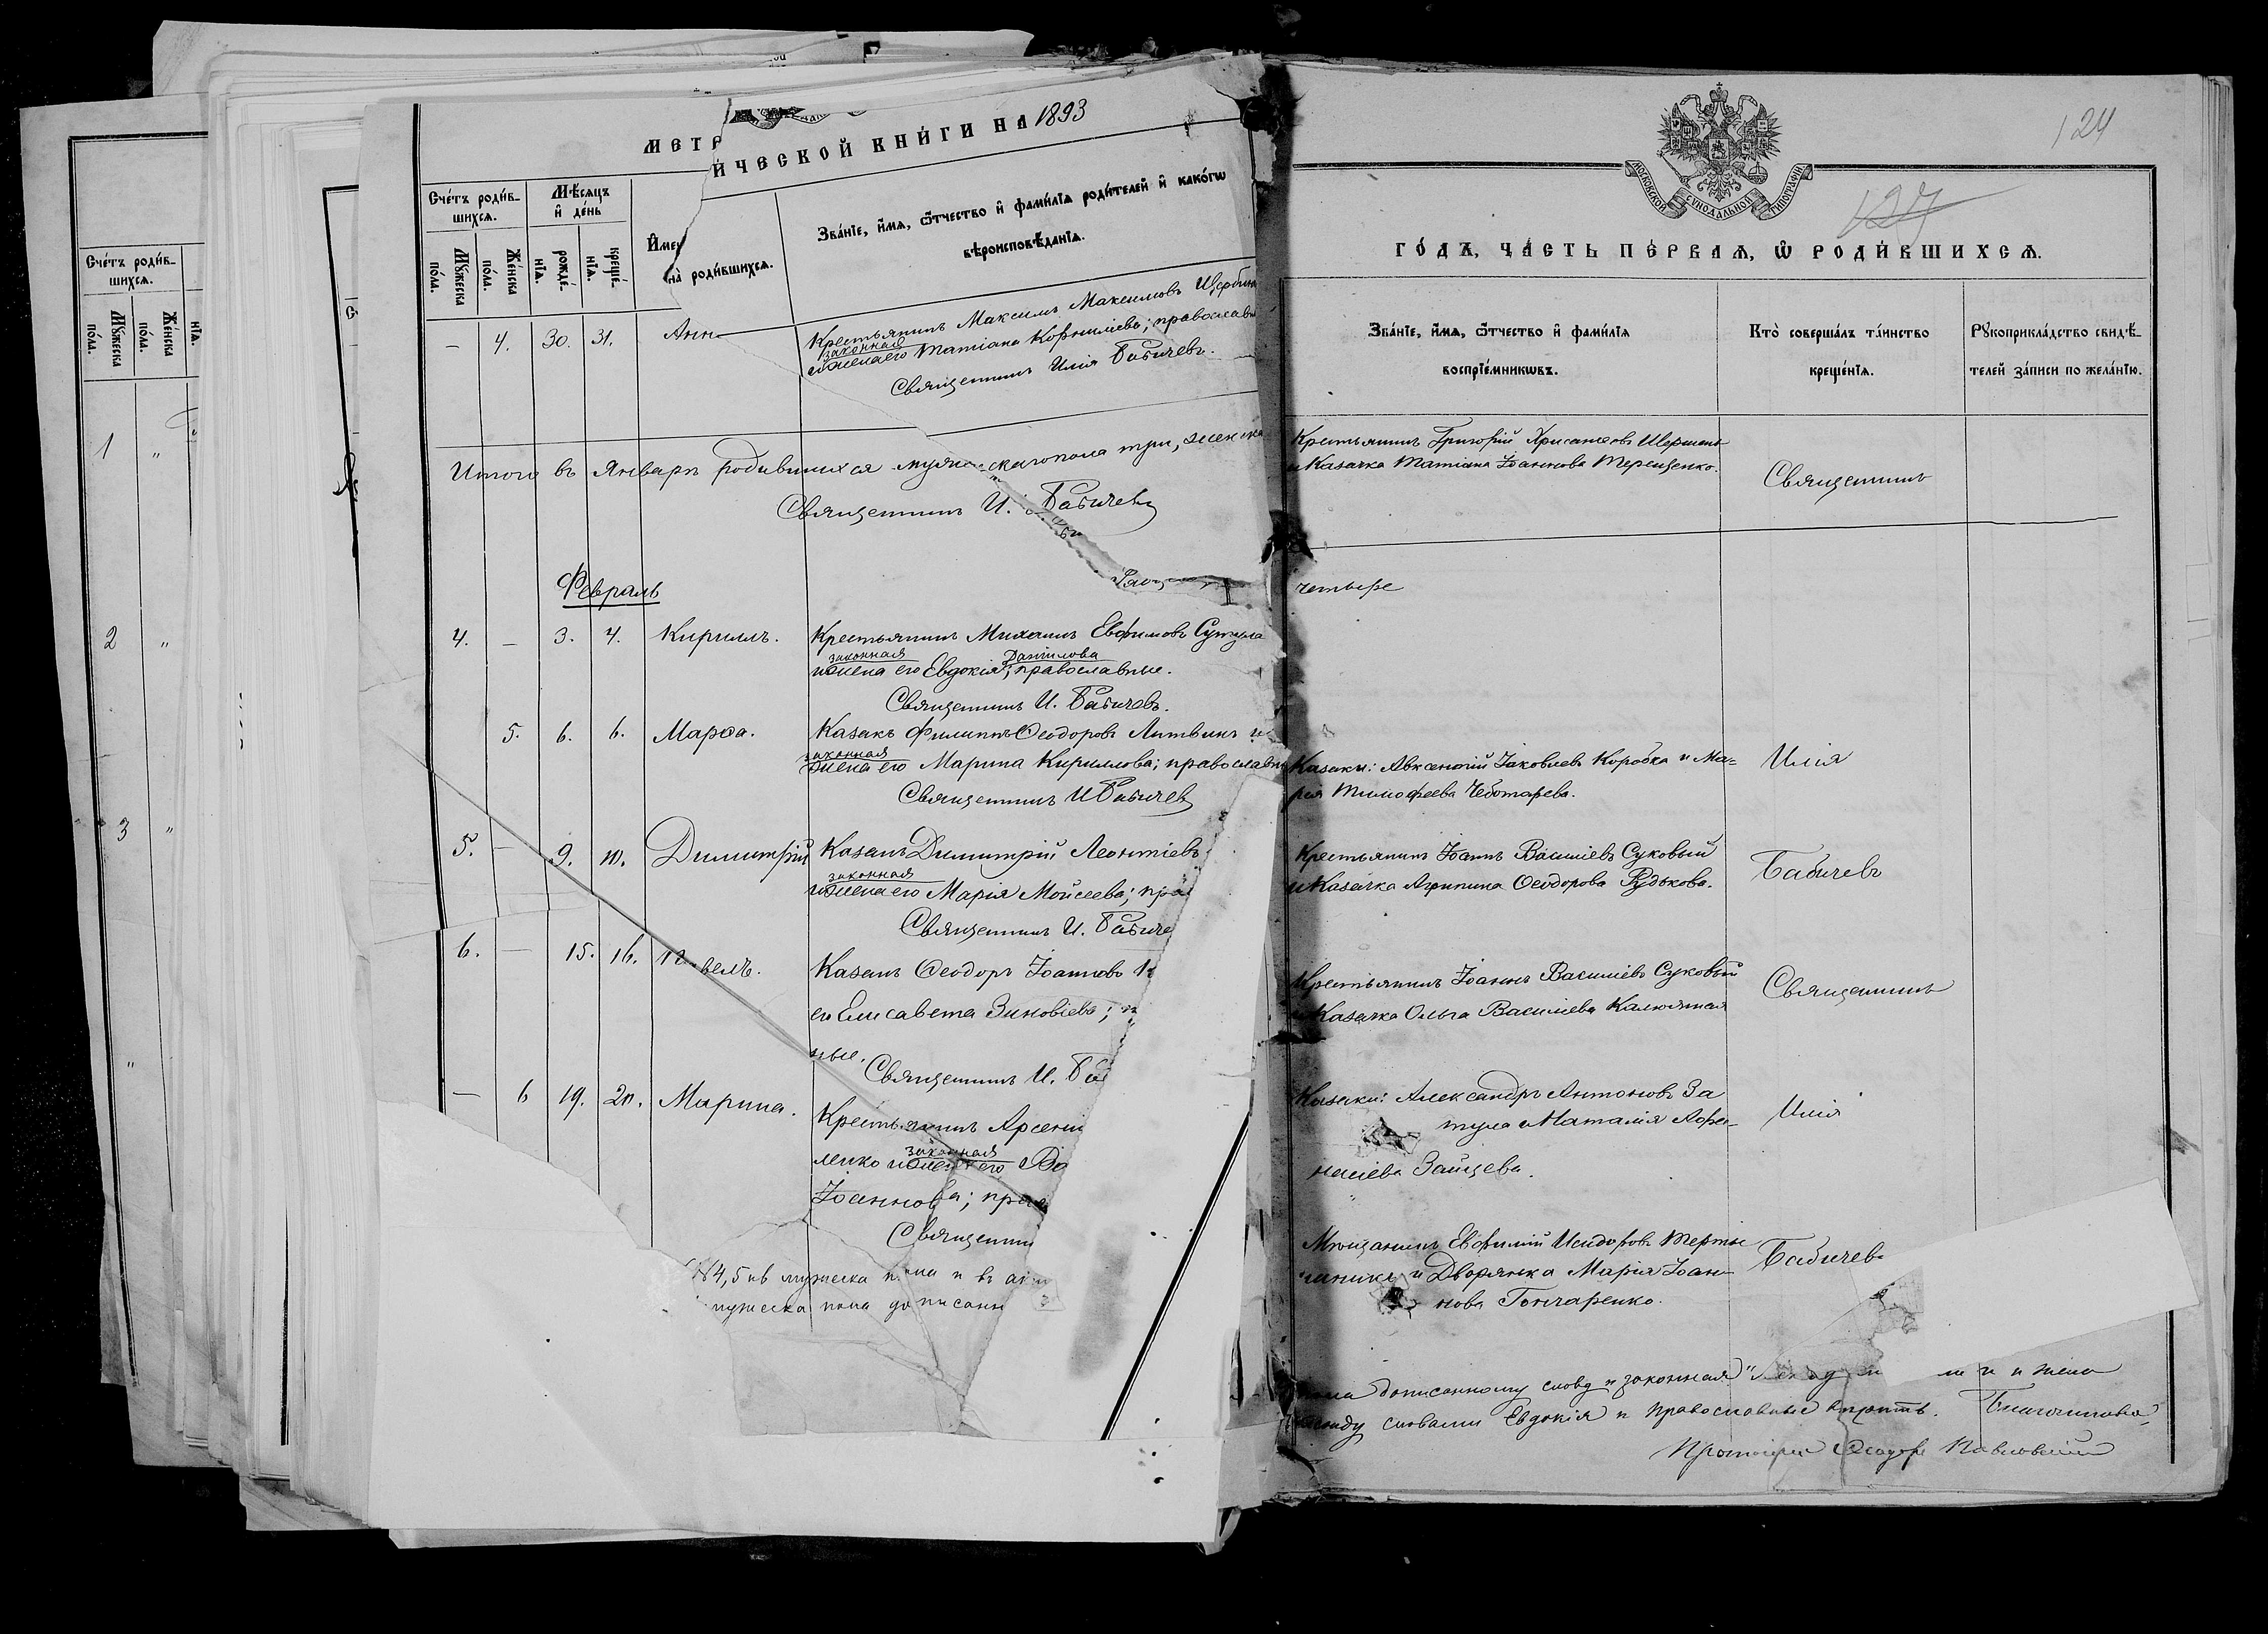 МЕТР
ИЧЕСКОЙ КНИ́ГИ НА 1893
Сче́тъ роди́в-
шихсѧ.
Мѣ́сѧцъ
и҆ де́нь
Мꙋ́жеска
по́ла.
Же́нска
по́ла.
рожде́-
нїѧ.
креще́-
нїѧ.
И҆мен
на̀ роди́вшихсѧ.
Зва́нїе, и҆́мѧ, ѻ҆́тчество и҆ фами́лїѧ роди́телей и҆ како́гѡ
вѣроисповѣ́данїѧ.
— 4. 30. 31. Анн
Крестьянинъ Максимъ Максимовъ Щербин
законная
и жена его Татіана Корниліева; православн
Священникъ Илія Бабичевъ.
Итого въ Январѣ родившихся мужескаго пола три, женска
Священникъ И. Бабичевъ
Февраль
4. — 3. 4. Кириллъ.
Крестьянинъ Михаилъ Евфимовъ Сутула
законная Данілова
и жена его Евдокія; православные.
Священникъ И. Бабичевъ.
5. 6. 6. Марѳа.
Казакъ Филиппъ Ѳеодоровъ Литвинъ и
законная
жена его Марина Кириллова; православны
Священникъ И Бабичевъ
5. — 9. 10. Димитрій
Казакъ Димитрій Леонтіевъ
законная
и жена его Марія Мойсеева; пра
Священникъ И. Бабиче
6. — 15. 16. велъ.
Казакъ Ѳеодоръ Іоанновъ
его Елисавета Зиновіева; п
ные.
Священникъ И. Баб
— 6 19. 20. Марина.
Крестьянинъ Арсені
законная
ленко и жена его
Іоаннова; прав
Священни
№ 4, 5 и 6 мужеска пола и въ
мужеска пола дописанн
124
127
МОСКОВСКОЙ СѴНОДАЛЬНОЙ ТИПОГРАФІИ
ГО́ДЪ, ЧА́СТЬ ПЕ́РВАѦ, Ѡ҆ РОДИ́ВШИХСѦ.
Зва́нїе, и҆́мѧ, ѻ҆́тчество и҆ фами́лїѧ
воспрїе́мникѡвъ.
Кто̀ соверша́лъ та́инство
креще́нїѧ.
Рꙋкоприкла́дство свидѣ́-
телей за́писи по жела́нїю.
Крестьянинъ Григорій Хрисанфовъ Шершень
и Казачка Татіана Іоаннова Терещенко.
Священникъ
четыре
Казаки: Авксентій Іаковлевъ Коробка и Ма-
рія Тимофеева Чеботарева.
Илія
Крестьянинъ Іоаннъ Василіевъ Суковый
и Казачка Агрипина Ѳеодорова Рудькова.
Бабичевъ
Крестьянинъ Іоаннъ Василіевъ Суковый
и Казачка Ольга Василіева Калюжная
Священникъ
Казаки: Александръ Антоновъ За
тула и Наталія Афа-
насіева Зайцева.
Илія
Мѣщанинъ Евфимій Исидоровъ Терты
чникъ и Дворянка Марія Іоан
нова Гончаренко.
Бабичевъ
пола дописанному слову "законная" и жена
между словами Евдокія и православные вѣрить. Благочинный
Протоіерей Ѳеодоръ Павловскій
Сче́тъ роди́в-
шихсѧ.
Мꙋ́жеска
по́ла.
Же́нска
по́ла.
нїѧ.
1 "
2 "
3 "
"